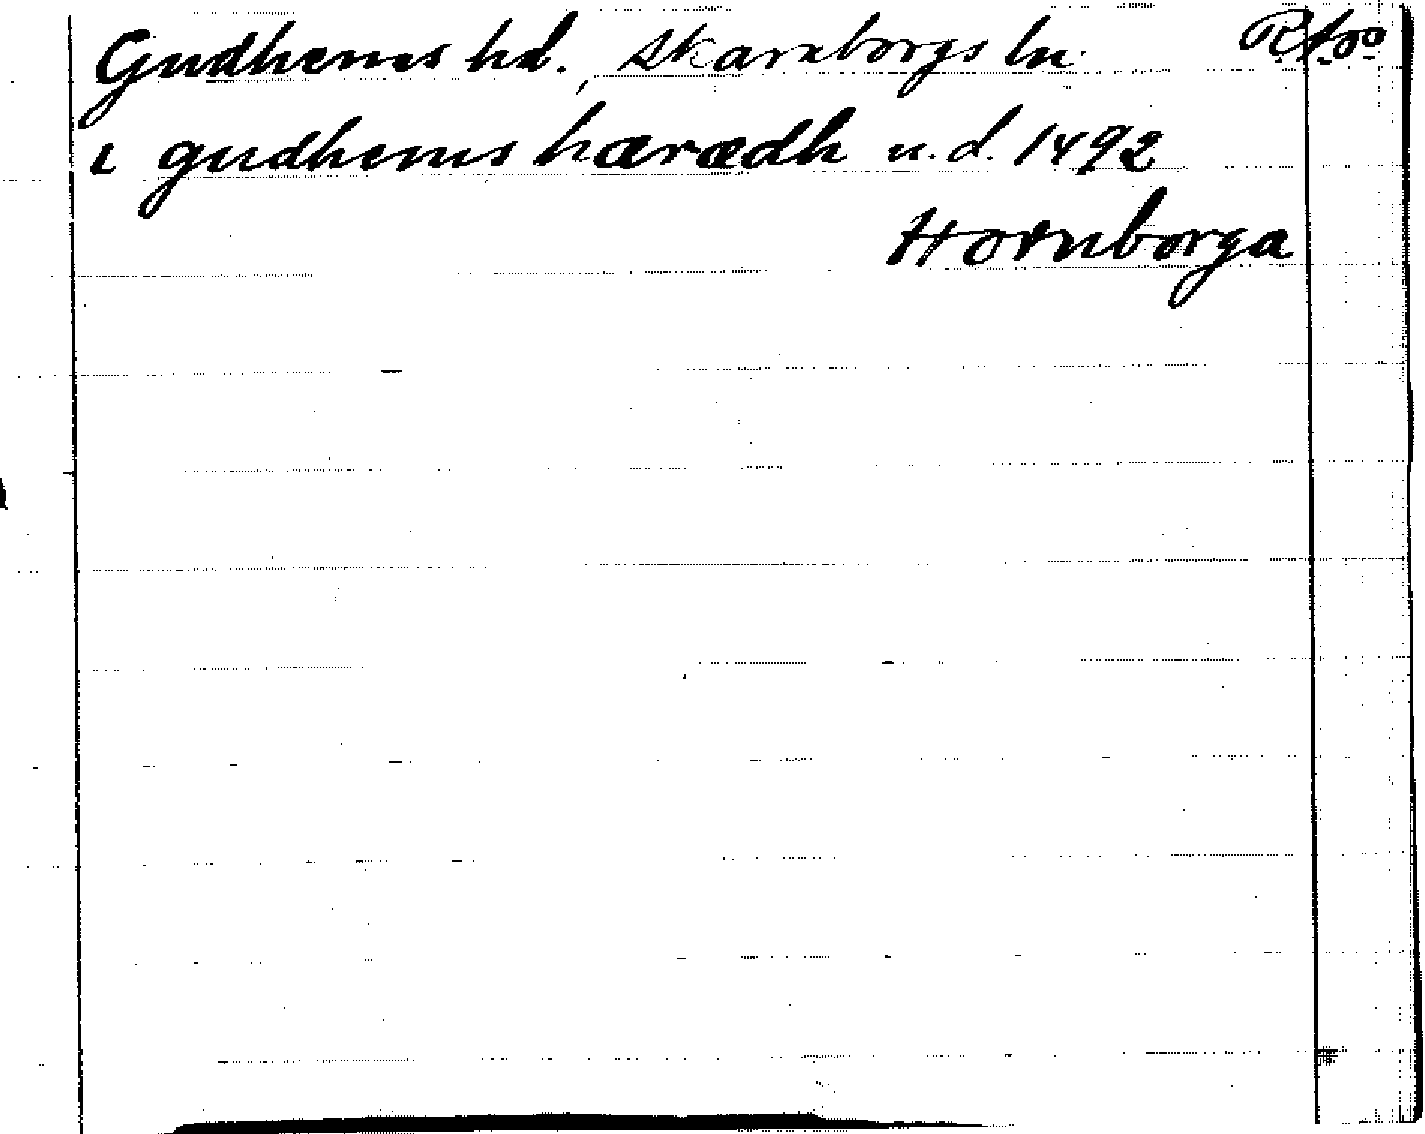 Gudhems hd., Skaraborgs ln. R.Ap.
i gudhems hærædh u.d. 1492
Hornborga